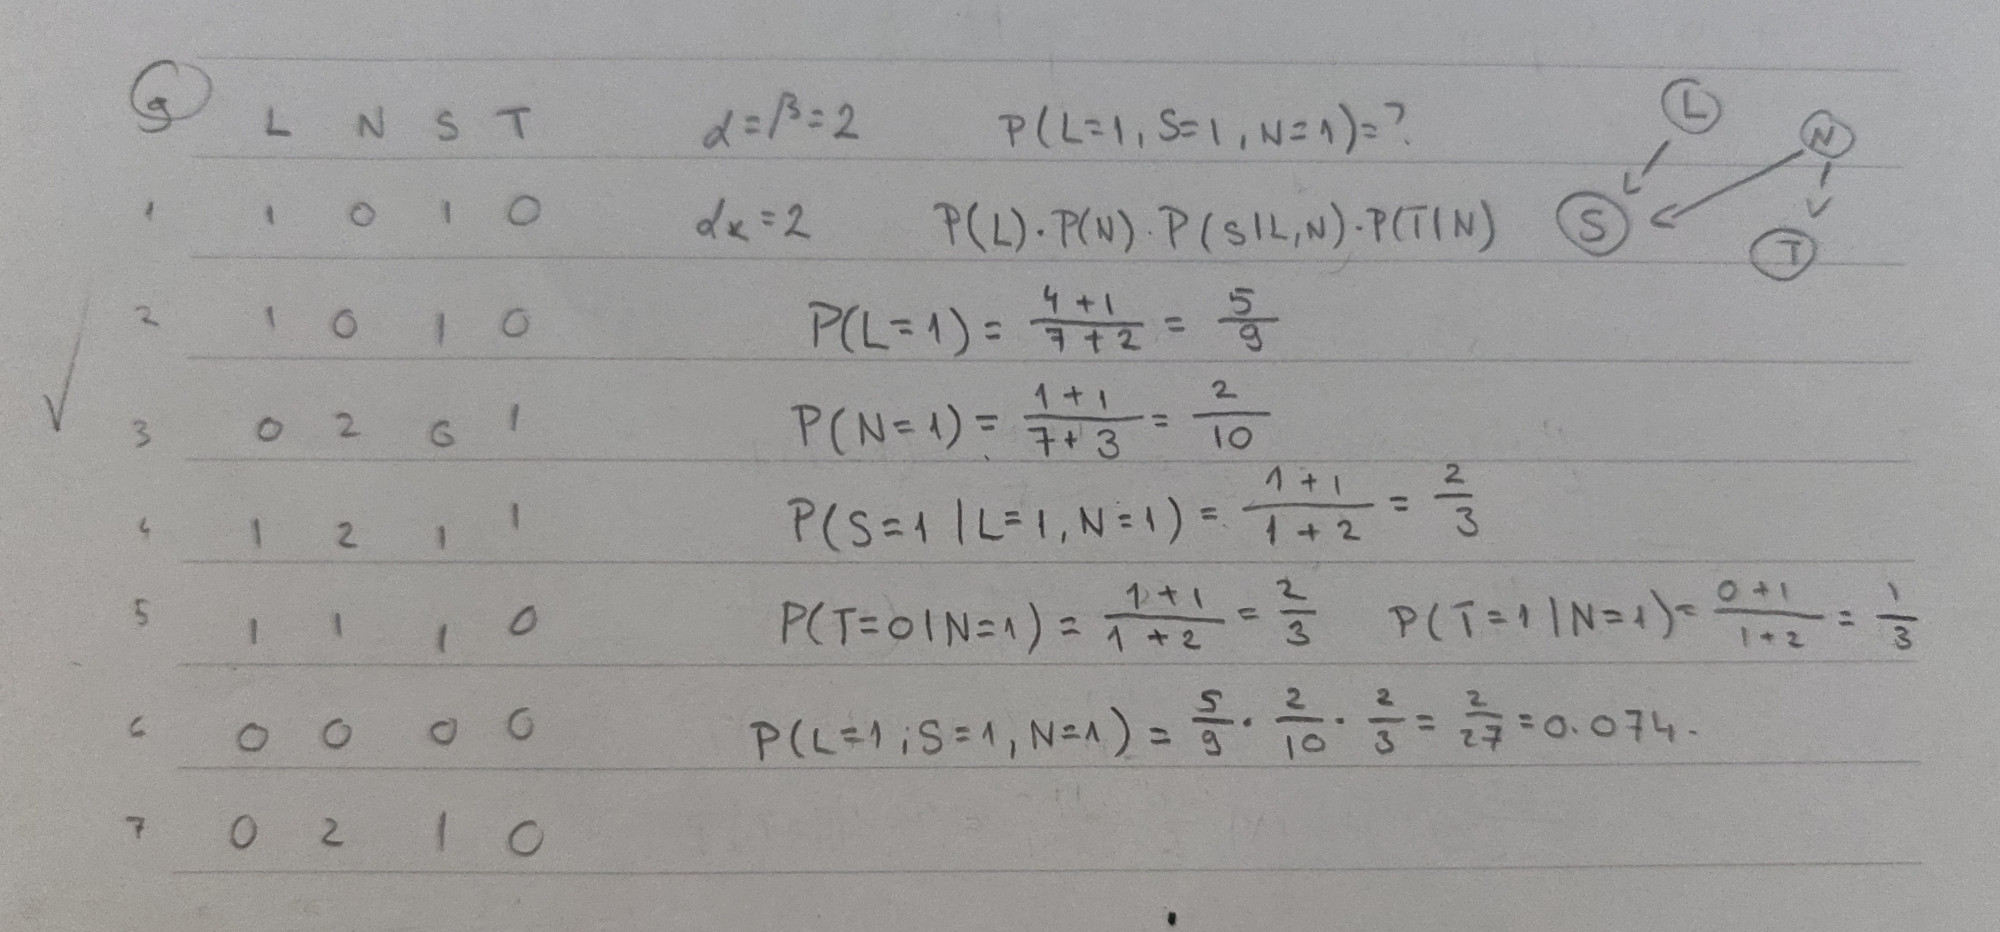 9 L N S T α=β=2 P(L=1, S=1, N=1)=? L N
1 1 0 1 0 αk=2 P(L)·P(N)·P(S|L,N)·P(T|N) S T
2 1 0 1 0 P(L=1) = 4+1/7+2 = 5/9
3 0 2 0 1 P(N=1) = 1+1/7+3 = 2/10
4 1 2 1 1 P(S=1|L=1, N=1) = 1+1/1+2 = 2/3
5 1 1 1 0 P(T=0|N=1) = 1+1/1+2 = 2/3 P(T=1|N=1)= 0+1/1+2 = 1/3
6 0 0 0 0 P(L=1;S=1,N=1) = 5/9 · 2/10 · 2/3 = 2/27 = 0.074.
7 0 2 1 0